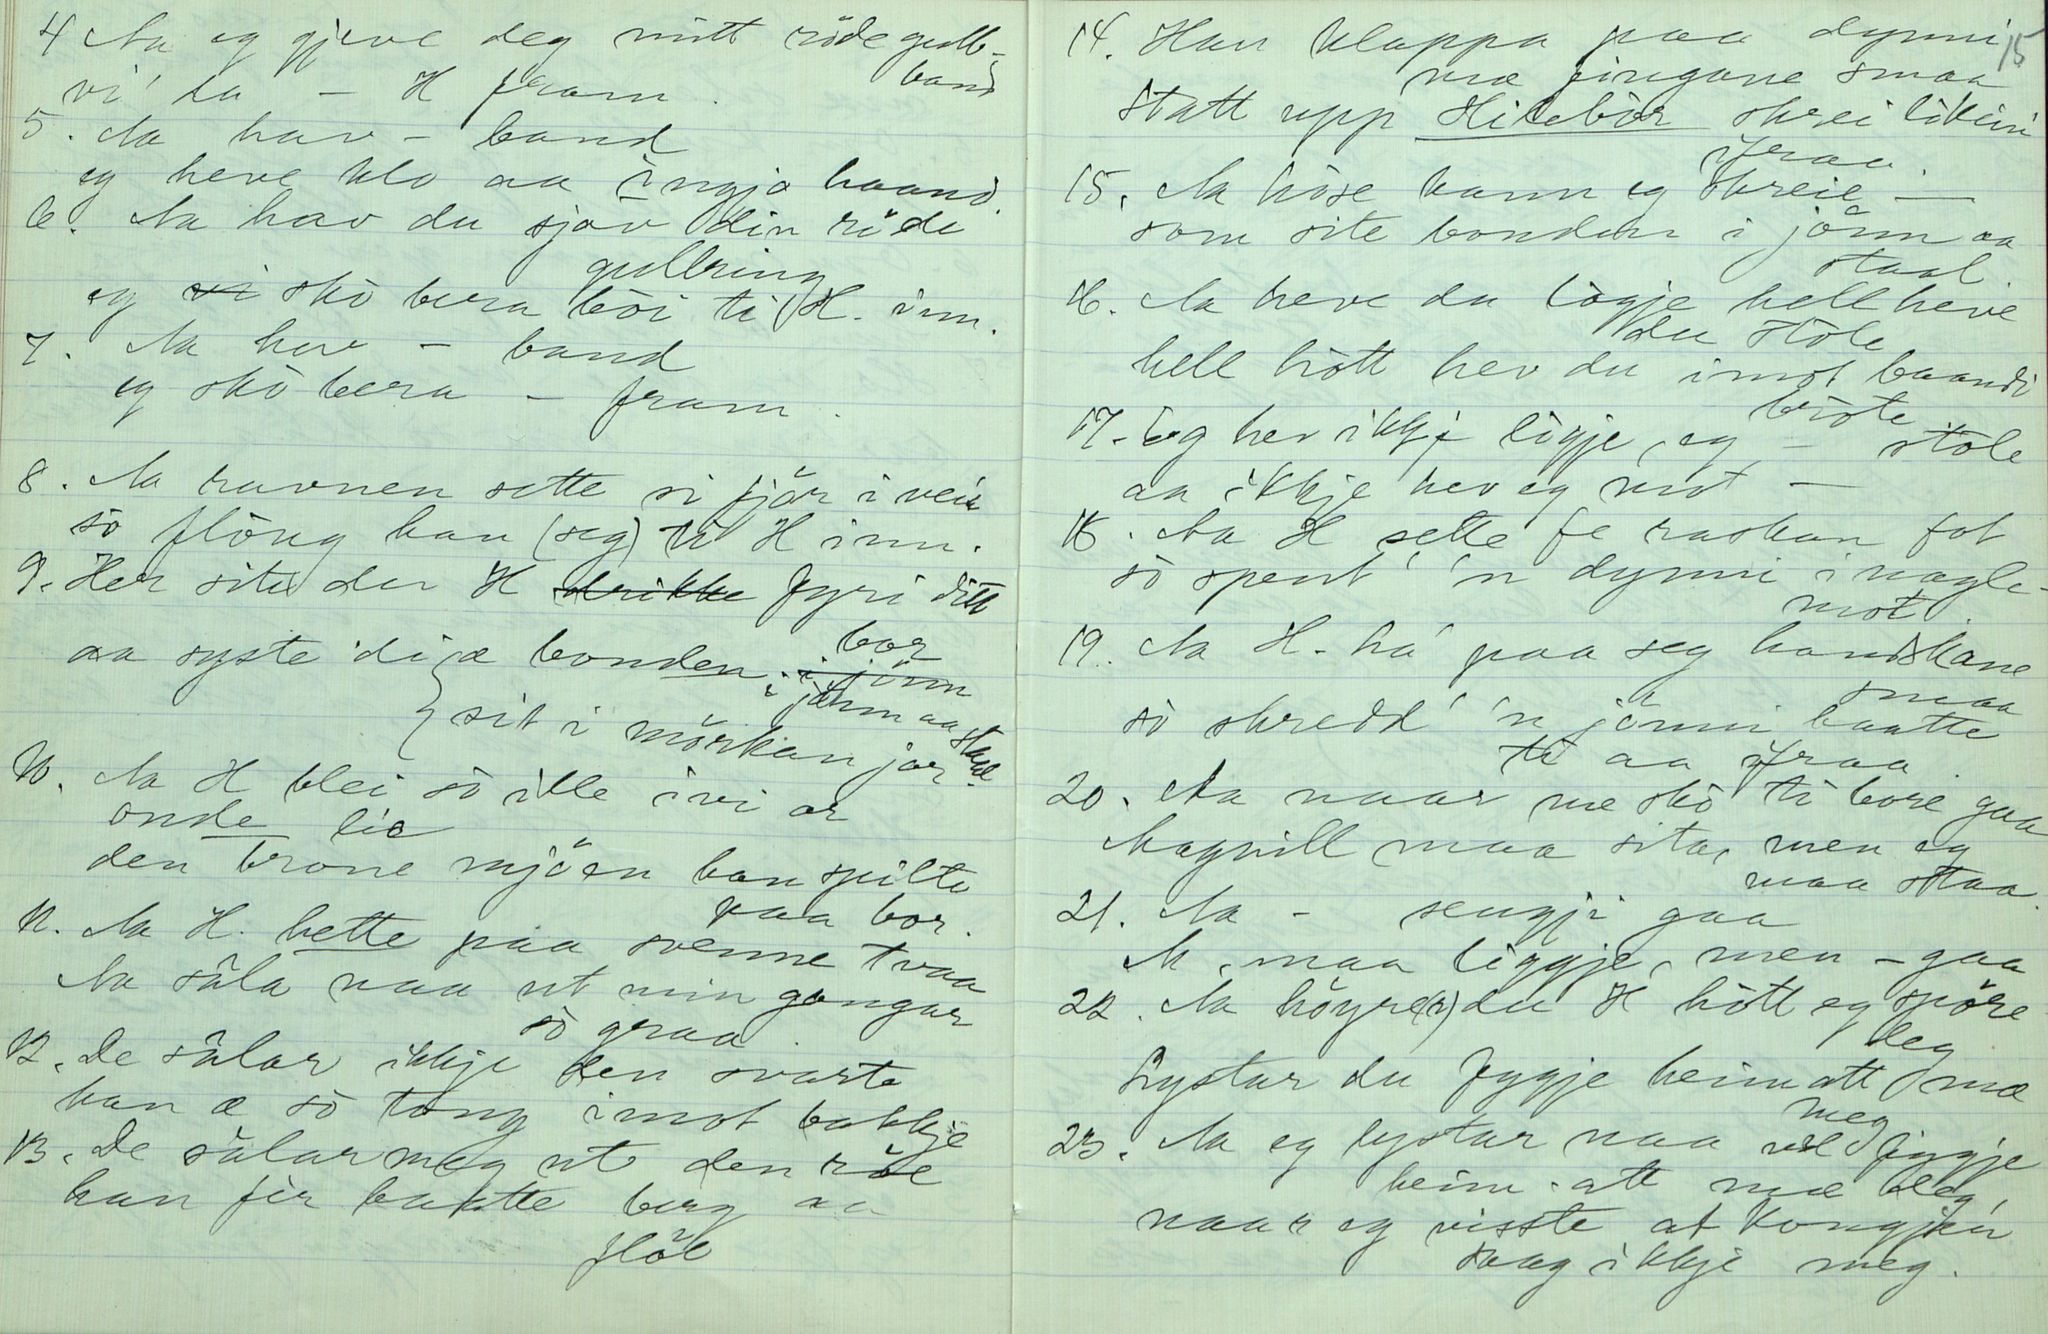 4 Aa eg gjeve deg mitt röde gull-
band
vi' du – H fram.
5. Aa hav – band
eg heve klo aa ingjo haand.
6. Aa hav du sjöv din röde
gullring
eg vi skò bera böi ti H. inn.
7. Aa hav – band
eg skò bera – fram.
8. Aa ravnen sette si fjör i vei
sò flöug han (seg) ti H inn.
9. Her site du H drikke fyri ditt
bor
aa syste di æ bonden i jönn
i jönn aa staal
sit i mörkan jor
10. Aa H blei sò ille ivi ar
onde lie
den brone mjöen han spilte
paa bor.
11. Aa H. hette paa svenne tvaa
Aa sãla naa ut min gangar
sò graa
12. De sãlar ikkje den svarte
han æ sò tong imot bakkje
13. De sãlar meg ut den röe
han fér baktte berg aa
flöe
15
14. Han klappa paa dynni
mæ fingane smaa
Statt upp Hilebör skrei likini
ifraa
15. Aa höse kann eg skreie —
som site bonden i jönn aa
staal
16. Aa heve du lògje hell heve
du stole
hell hòtt hev du imot baandi
bròte
17. Eg hev ikkje lògje, eg – stole
aa ikkje hev eg mot —
18. Aa H sette fe raskan fot
sò spent' 'n dynni i nagle-
mot.
19. Aa H. há paa seg handskane
smaa
sò skredd' 'n jönni baatte
ti aa ifraa.
20. Aa naar me skò ti bore gaa
Magnill maa sita, men eg
maa staa.
21. Aa – sengji gaa
M. maa liggje, men – gaa
22. Aa höyre(r) du H hòtt eg spöre
deg
Lystar du fyggje heim att mæ
meg
23. Aa eg lystar naa vel fyggje
heim att mæ deg,
naar eg visste at kongjen
saag ikkje meg.